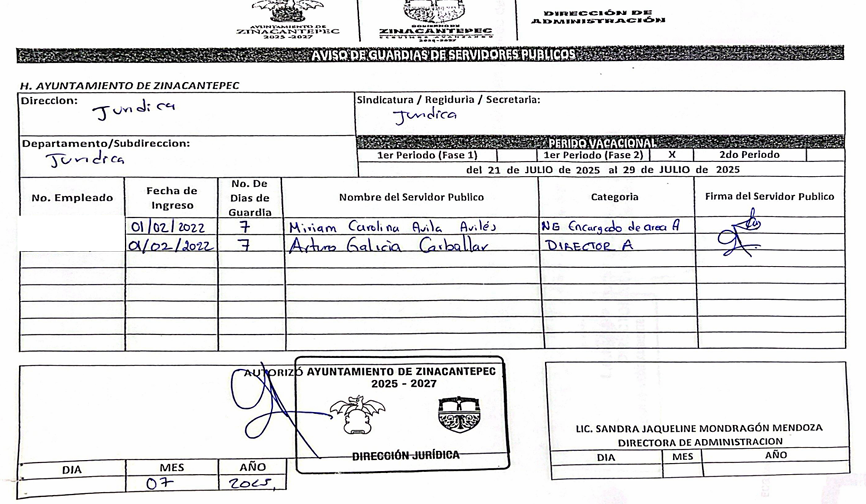 AYUNTAMIENTO DE
ZINACANTEPEC
2025 -2027
GOBIERNO DE
ZINACANTEPEC
DIRECCIÓN DE
ADMINISTRACIÓN
AVISO DE GUARDIAS DE SERVIDORES PUBLICOS
H. AYUNTAMIENTO DE ZINACANTEPEC
Direccion: Juridica
Sindicatura / Regiduria / Secretaria:
Juridica
Departamento/Subdireccion:
Juridica
PERIDO VACACIONAL
1er Periodo (Fase 1) 1er Periodo (Fase 2) X 2do Periodo
del 21 de JULIO de 2025 al 29 de JULIO de 2025
No. Empleado Fecha de Ingreso No. De Dias de Guardia Nombre del Servidor Publico Categoria Firma del Servidor Publico
01/02/2022 7 Miriam Carolina Avila Avilés NG Encargado de area A
01/02/2022 7 Arturo Galicia Carballar DIRECTOR A
AUTORIZÓ
AYUNTAMIENTO DE ZINACANTEPEC
2025 - 2027
DIRECCIÓN JURÍDICA
DIA MES AÑO
07 2025,
LIC. SANDRA JAQUELINE MONDRAGÓN MENDOZA
DIRECTORA DE ADMINISTRACION
DIA MES AÑO